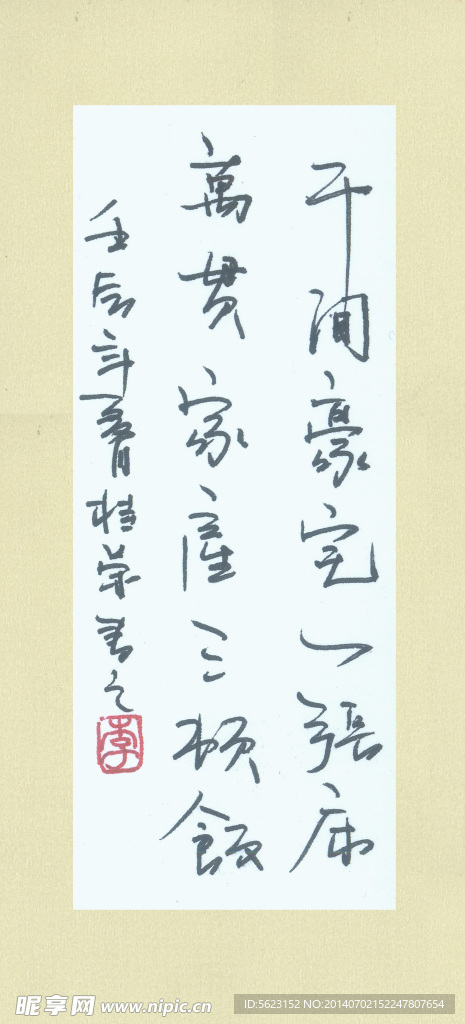 千間豪宅一張床
萬貫家產三頓飯
壬辰年夏月桂荣書之
李
昵享网 www.nipic.cn
ID:5623152 NO:20140702152247807654